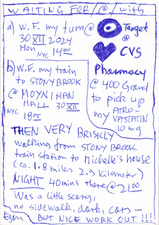 WAITING FOR / @ / with
a) W.F. my turn @
30 XII 2024
Mon NYC 14°°
Target
@
CVS
Pharmacy
@ 400 Grand
to pick up
my ATRO-
VASTATIN
10 mg
b) W.F. my train
to STONY BROOK
@ MOYNIHAN
HALL 30 XII
NYC 18°°
THEN VERY BRISKLY
walking from STONY BROOK
train station to Michelle's house
(ca. 1.8 miles 2.9 kilometer)
NIGHT 40mins there @ 2100
Was a little scary,
no sidewalk, dark, cars —
BUT NICE WORK OUT !!!